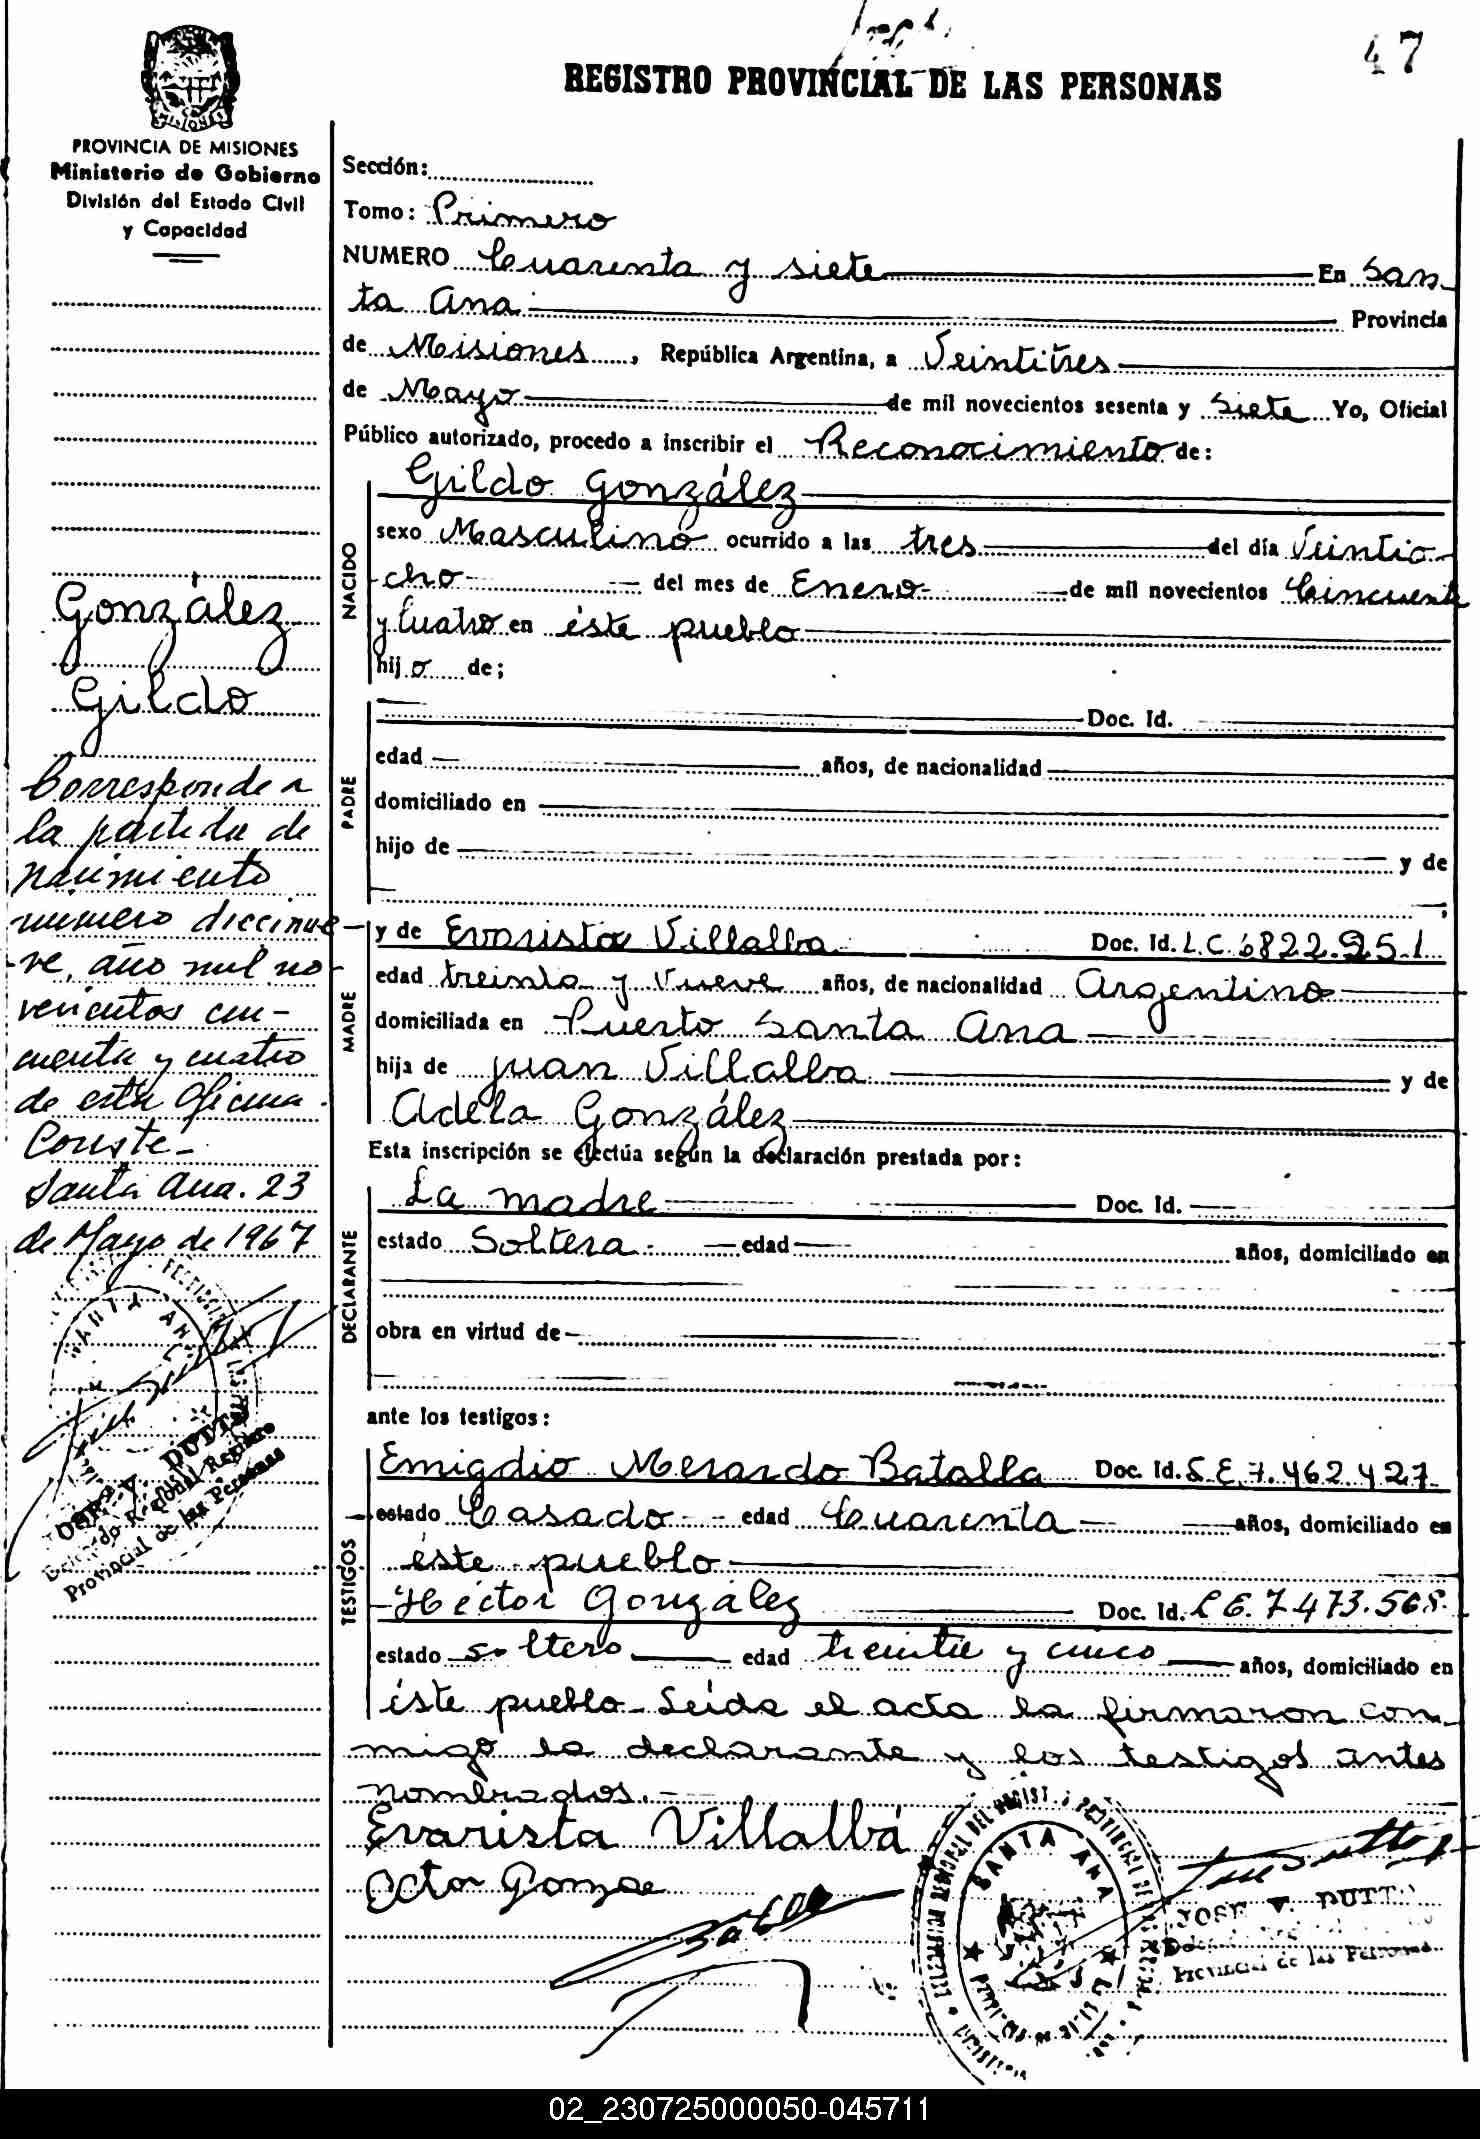 47
REGISTRO PROVINCIAL DE LAS PERSONAS
PROVINCIA DE MISIONES
Ministerio de Gobierno
División del Estado Civil
y Capacidad
González
Gildo
Corresponde a
la partida de
nacimiento
número diecinue-
ve, año mil no-
vecientos cin-
cuenta y cuatro
de esta Oficina.
Conste-
Santa Ana. 23
de Mayo de 1967
SANTA ANA
Provincial de las Personas
Sección:
Tomo: Primero
NUMERO Cuarenta y siete En San
ta Ana Provincia
de Misiones, República Argentina, a Veintitres
de Mayo de mil novecientos sesenta y Siete Yo, Oficial
Público autorizado, procedo a inscribir el Reconocimiento de:
Gildo González
NACIDO
sexo Masculino ocurrido a las tres del día Veintio-
cho del mes de Enero de mil novecientos Cincuenta
y Cuatro en éste pueblo
hijo de;
PADRE
Doc. Id.
edad años, de nacionalidad
domiciliado en
hijo de y de
MADRE
y de Evarista Villalba Doc. Id. L.C. 6822.951
edad treinta y Nueve años, de nacionalidad Argentina
domiciliada en Puerto Santa Ana
hija de Juan Villalba y de
Adela González
Esta inscripción se efectúa según la declaración prestada por:
DECLARANTE
La madre Doc. Id.
estado Soltera edad años, domiciliado en
obra en virtud de
ante los testigos:
TESTIGOS
Emigdio Merardo Batalla Doc. Id. S.E. 7.462.427
estado Casado edad Cuarenta años, domiciliado en
éste pueblo
Héctor González Doc. Id. L E. 7.473.568.
estado soltero edad treinta y cinco años, domiciliado en
éste pueblo - Leída el acta la firmaron con
migo la declarante y los testigos antes
nombrados.-
Evarista Villalba
Octor Gonzae
SANTA ANA
JOSE V. DUTTO
Provincial de las Personas
02_230725000050-045711